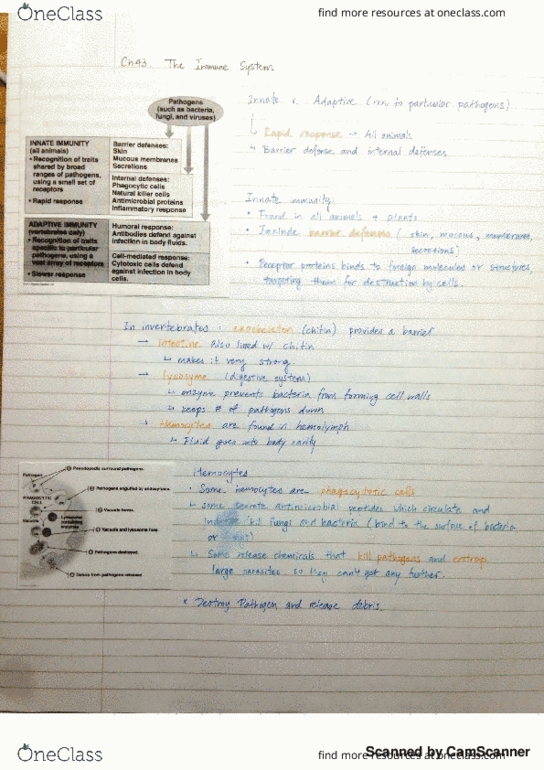 OneClass
find more resources at oneclass.com
Ch43. The Immune System
Pathogens
(such as bacteria,
fungi, and viruses)
INNATE IMMUNITY
(all animals)
• Recognition of traits
shared by broad
ranges of pathogens,
using a small set of
receptors
• Rapid response
Barrier defenses:
Skin
Mucous membranes
Secretions
Internal defenses:
Phagocytic cells
Natural killer cells
Antimicrobial proteins
Inflammatory response
ADAPTIVE IMMUNITY
(vertebrates only)
• Recognition of traits
specific to particular
pathogens, using a
vast array of receptors
• Slower response
Humoral response:
Antibodies defend against
infection in body fluids.
Cell-mediated response:
Cytotoxic cells defend
against infection in body
cells.
Innate v. Adaptive ( to particular pathogens)
Rapid response → All animals
↳ Barrier defense and internal defenses
Innate immunity:
• Found in all animals & plants
• Include barrier defenses (skin, mucous, membrane,
secretions)
• Receptor proteins binds to foreign molecules or structures,
targeting them for destruction by cells.
In invertebrates: exoskeleton (chitin) provides a barrier
→ Intestine Also lined w/ chitin
↳ makes it very strong
→ lysozyme (digestive system)
↳ enzyme prevents bacteria from forming cell walls
↳ keeps # of pathogens down
↳ Hemocytes are found in hemolymph
↳ Fluid goes into body cavity
Pathogen
PHAGOCYTIC
CELL
Vacuole
Lysosome
containing
enzymes
① Pseudopodia surround pathogens.
② Pathogens engulfed by endocytosis.
③ Vacuole forms.
④ Vacuole and lysosome fuse.
⑤ Pathogens destroyed.
⑥ Debris from pathogens released.
Hemocytes
• Some hemocytes are phagocytotic cells
↳ Some secrete antimicrobial peptides which circulate and
kill fungi and bacteria (bind to the surface of bacteria
or
↳ Some release chemicals that kill pathogens and entrap
large parasites so they can't get any further.
* Destroy Pathogen and release debris.
OneClass
find more resources at oneclass.com
Scanned by CamScanner